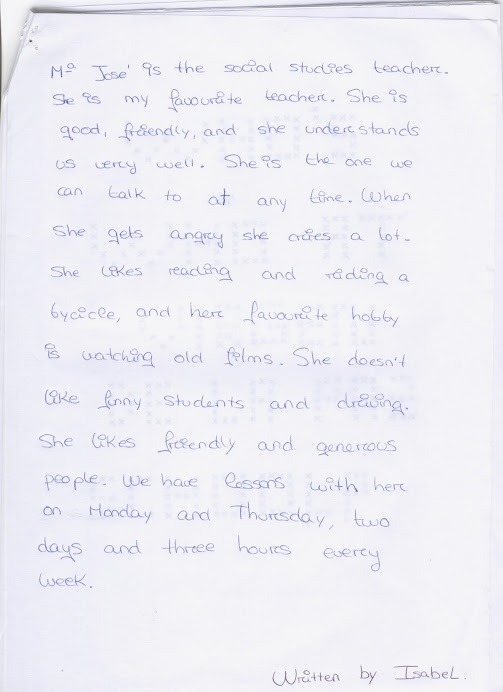 Mª José is the social studies teacher.
She is my favourite teacher. She is
good, friendly, and she understands
us very well. She is the one we
can talk to at any time. When
she gets angry she cries a lot.
She likes reading and riding a
bycicle, and her favourite hobby
is watching old films. She doesn't
like funny students and driving.
She likes friendly and generous
people. We have lessons with her
on Monday and Thursday, two
days and three hours every
week.
Written by Isabel.